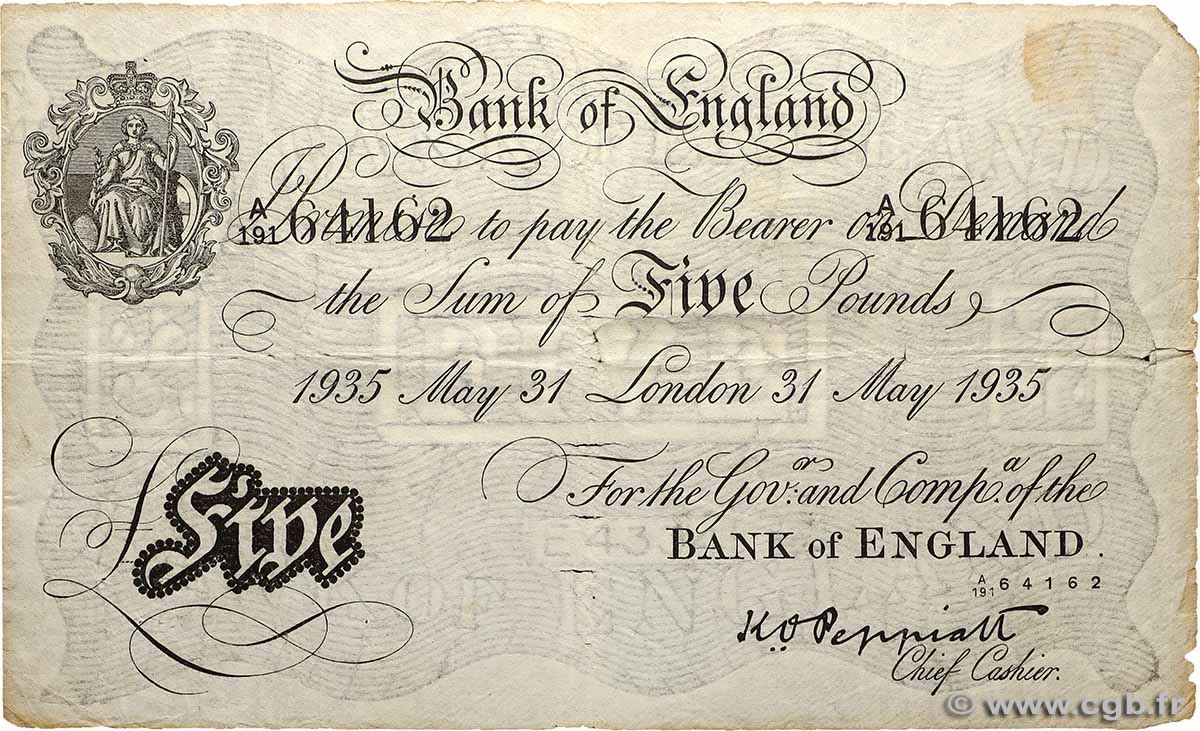 Bank of England
A
191 64162 to pay the Bearer on Demand A
191 64162
the Sum of Five Pounds
1935 May 31 London 31 May 1935
£Five
For the Gov:r and Comp.a of the
BANK of ENGLAND.
A
191 64162
K.O. Peppiatt
Chief Cashier.
© www.cgb.fr